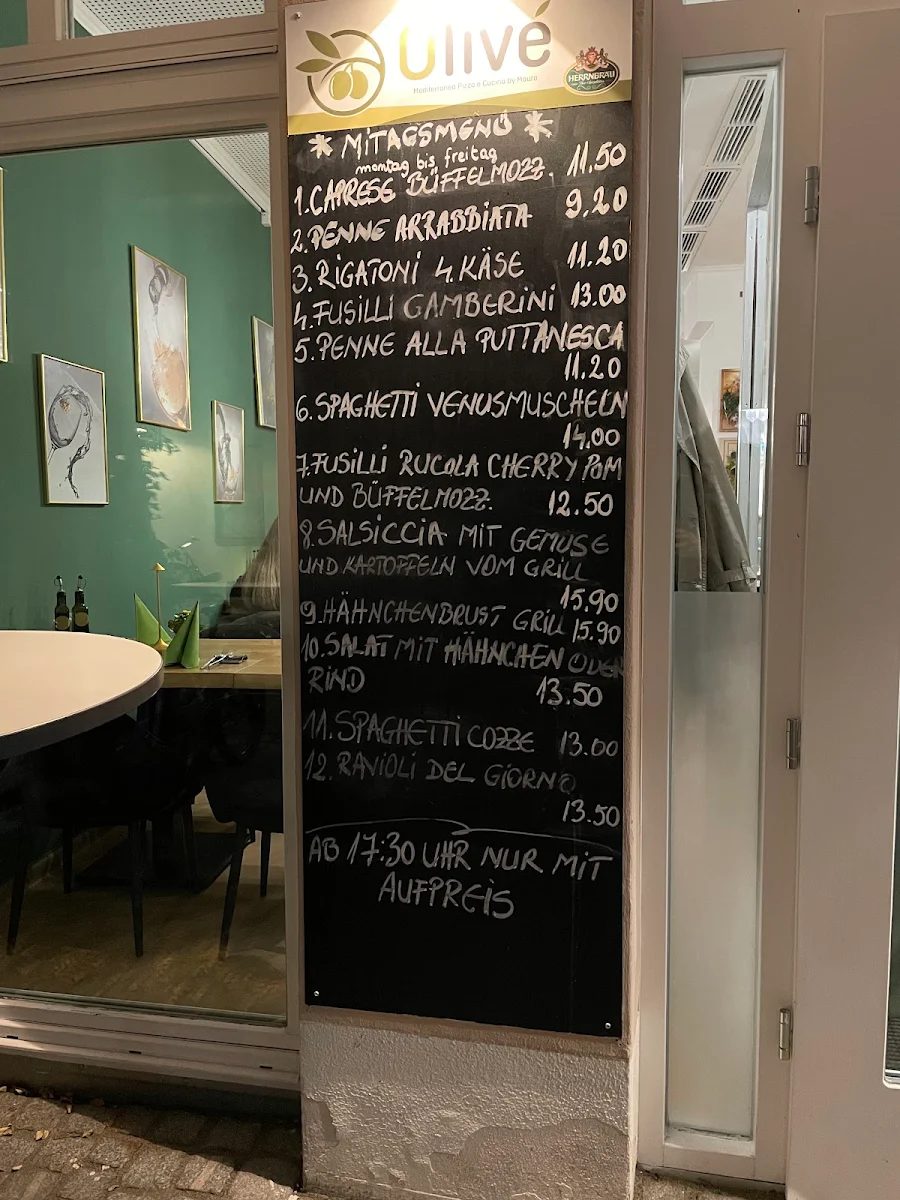 Ulivé
Mediterranea Pizza e Cucina by Mauro
HERRNBRÄU
* MITAGSMENÜ *
montag bis freitag
1. CAPRESE BÜFFELMOZZ. 11.50
2. PENNE ARRABBIATA 9.20
3. RIGATONI 4. KÄSE 11.20
4. FUSILLI GAMBERINI 13.00
5. PENNE ALLA PUTTANESCA
11.20
6. SPAGHETTI VENUSMUSCHELN
14.00
7. FUSILLI RUCOLA CHERRY POM
UND BÜFFELMOZZ. 12.50
8. SALSICCIA MIT GEMÜSE
UND KARTOFFELN VOM GRILL
15.90
9. HÄHNCHENBRUST GRILL 15.90
10. SALAT MIT HÄHNCHEN ODER
RIND 13.50
11. SPAGHETTI COZZE 13.00
12. RAVIOLI DEL GIORNO
13.50
AB 17:30 UHR NUR MIT
AUFPREIS